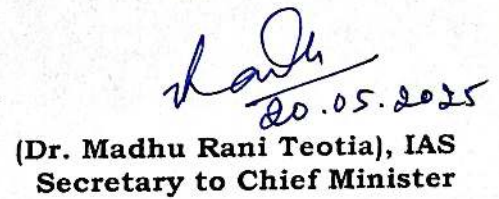 20.05.2025
(Dr. Madhu Rani Teotia), IAS
Secretary to Chief Minister